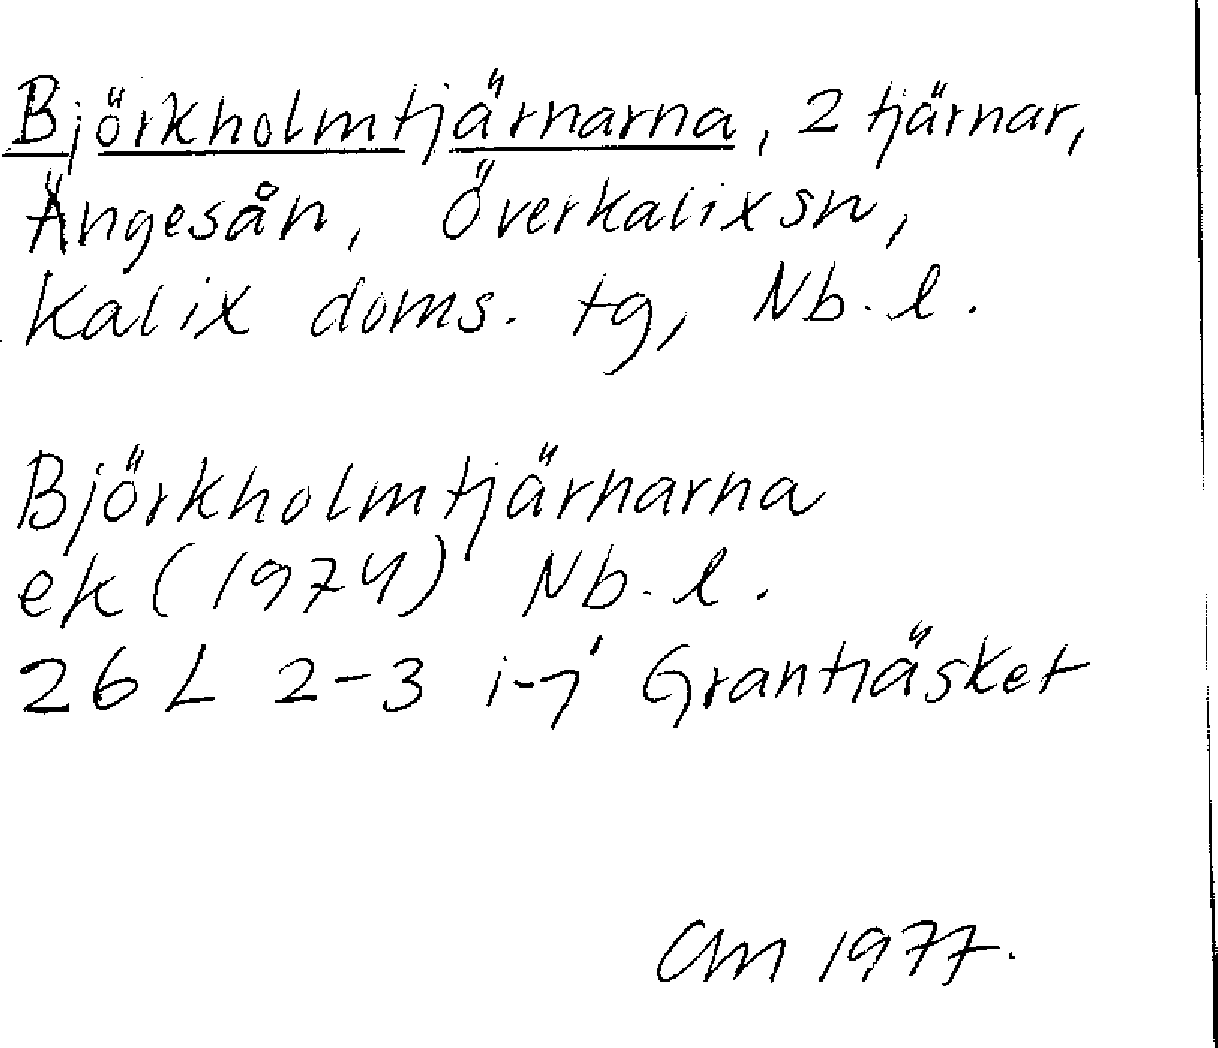 Björkholmtjärnarna, 2 tjärnar,
Ängesån, Överkalix sn,
Kalix doms. tg, Nb. l.
Björkholmtjärnarna
ek (1974) Nb. l.
26 L 2-3 i-j Granträsket
CM 1977.